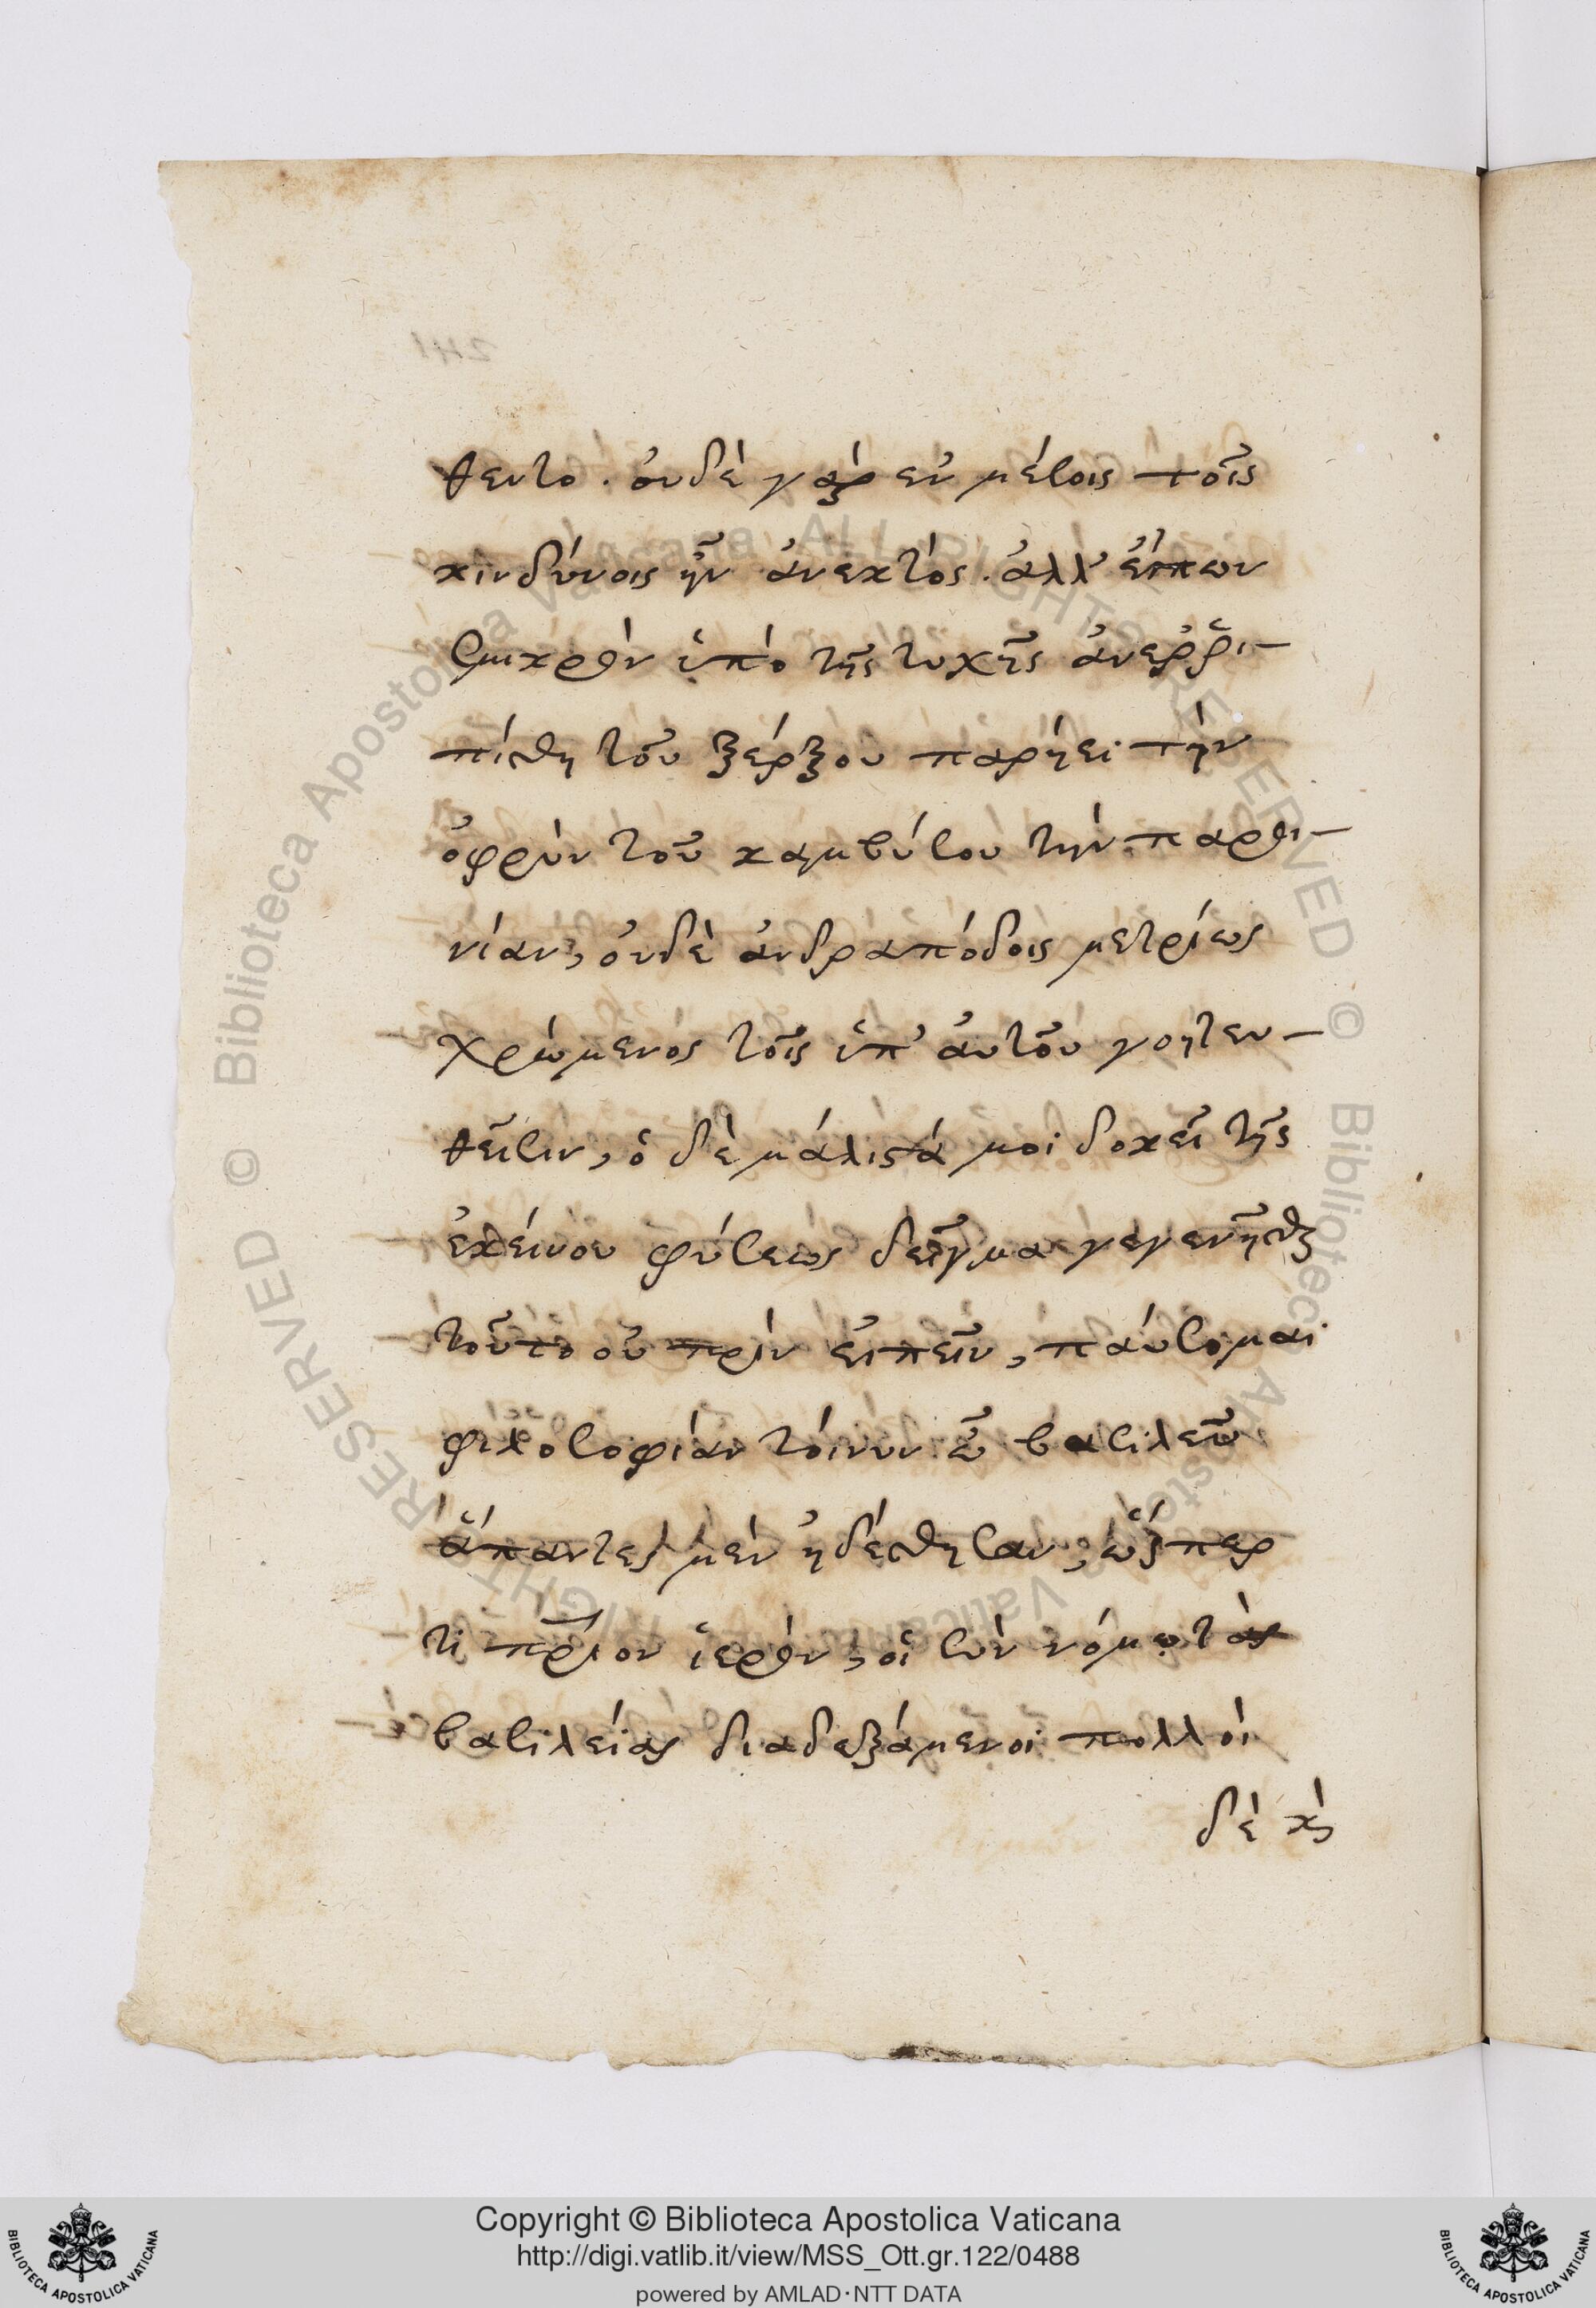 θεντο. οὐδὲ γὰρ ἐν μέσοις τοῖς
κινδύνοις ἦν ἀνεκτὸς. ἀλλ' εἴπων
σμικρὸν ὑπὸ τῆς τυχῆς ἀνερῥι-
πίσθη τοῦ ξέρξου παρῄει τὴν
ὀφρὺν τοῦ καμβύσου τὴν παροι-
νίαν, οὐδὲ ἀνδραπόδοις μετρίως
χρώμενος τοῖς ὑπ' αὐτοῦ γοητευ-
θεῖσιν, ὃ δὲ μάλιστά μοι δοκεῖ τῆς
ἐκείνου φύσεως δεῖγμα γεγενῆσθαι
τοῦτο οὐ πρὶν εἰπεῖν, παύσομαι
φιλοσοφίαν τοίνυν ὦ βασιλεῦ
ἅπαντες μὲν ᾐδέσθησαν, ὥσπερ
τι πάτριον ἱερὸν, οἱ σὺν νόμῳ τὰς
βασιλείας διαδεξάμενοι πολλοὶ
δὲ καὶ
241
Copyright © Biblioteca Apostolica Vaticana
http://digi.vatlib.it/view/MSS_Ott.gr.122/0488
powered by AMLAD·NTT DATA
BIBLIOTECA APOSTOLICA VATICANA
BIBLIOTECA APOSTOLICA VATICANA
© Biblioteca Apostolica Vaticana ALL RIGHTS RESERVED © Biblioteca Apostolica Vaticana ALL RIGHTS RESERVED